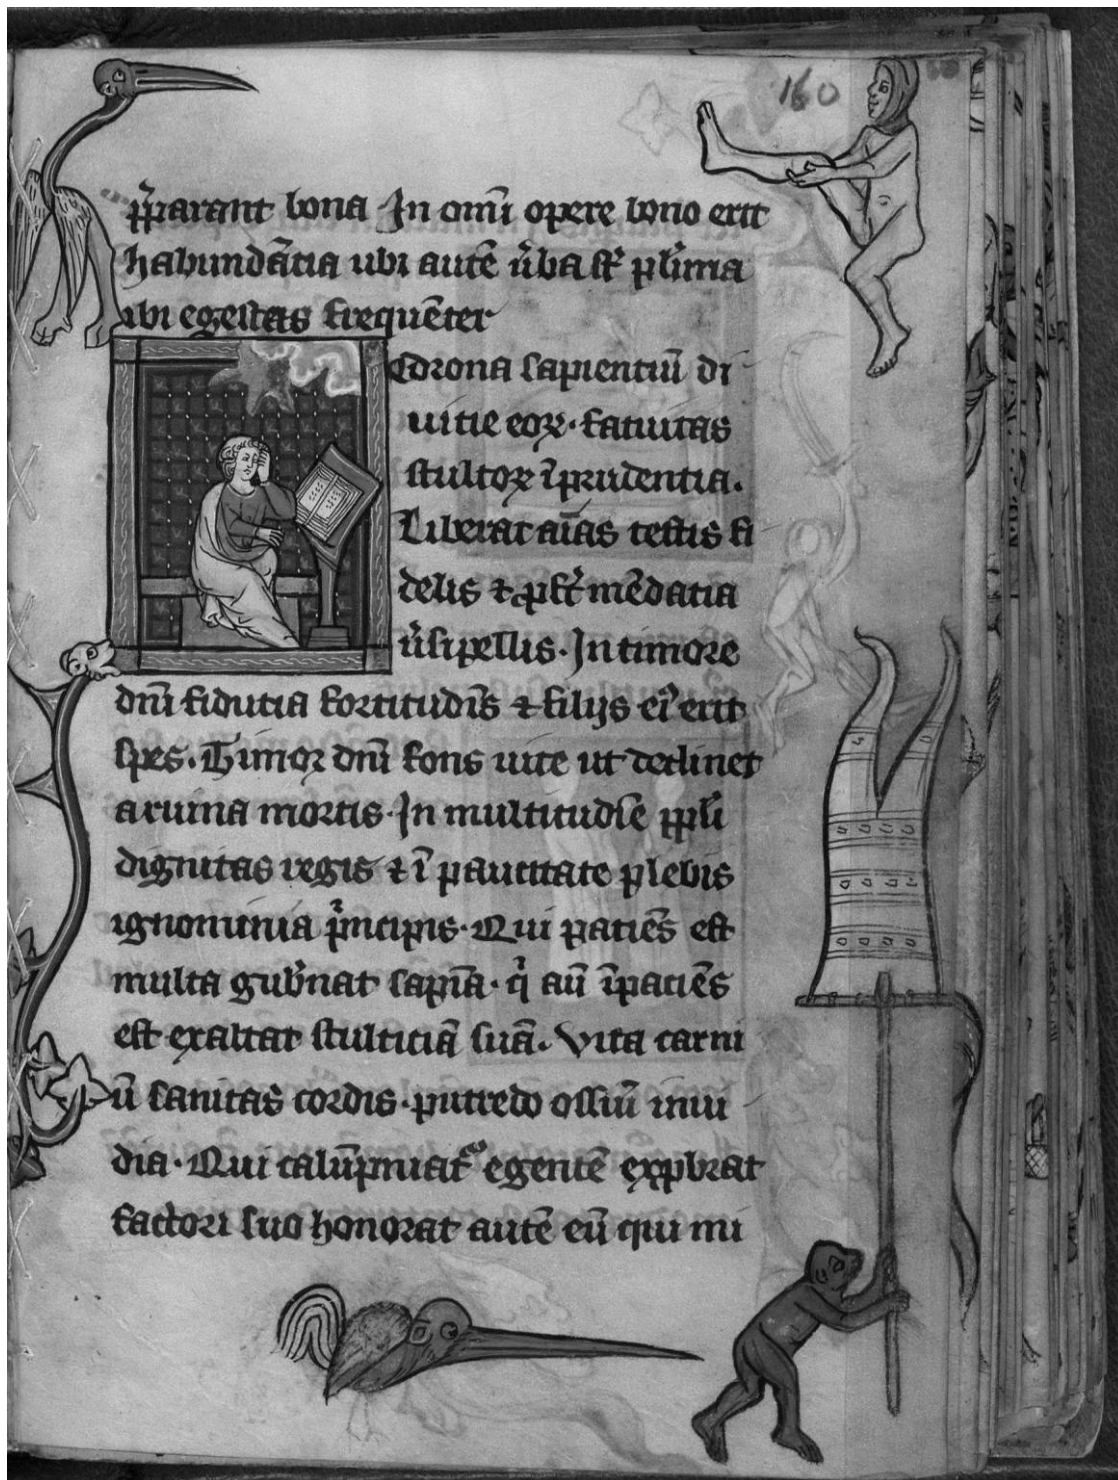 160
p̃parant bona In om̃i opere bono erit
habundãtia ubi autẽ ũba st̃ pl̃ima
ibi egestas frequẽter
Corona sapientiũ di
uitie eoꝝ· fatuitas
stultoꝝ ĩprudentia.
Liberat aĩas testis fi
delis ⁊ ꝓfert mẽdatia
ũsipellis· In timore
dñi fidutia fortitudĩs ⁊ filijs ei᷒ erit
spes. Timor dñi fons uite ut declinet
a ruina mortis· In multitudĩe ppl̃i
dignitas regis ⁊ ĩ paucitate plebis
ignominia p̃ncipis· Qui patiẽs est
multa gub̃nat sapĩa· q̃ aũ ĩpaciẽs
est exaltat stulticiã suã. Vita carni
ũ sanitas cordis· putredo ossiũ inui
dia· Qui calũpniat᷑ egentẽ exꝓbrat
factori suo honorat autẽ eũ qui mi